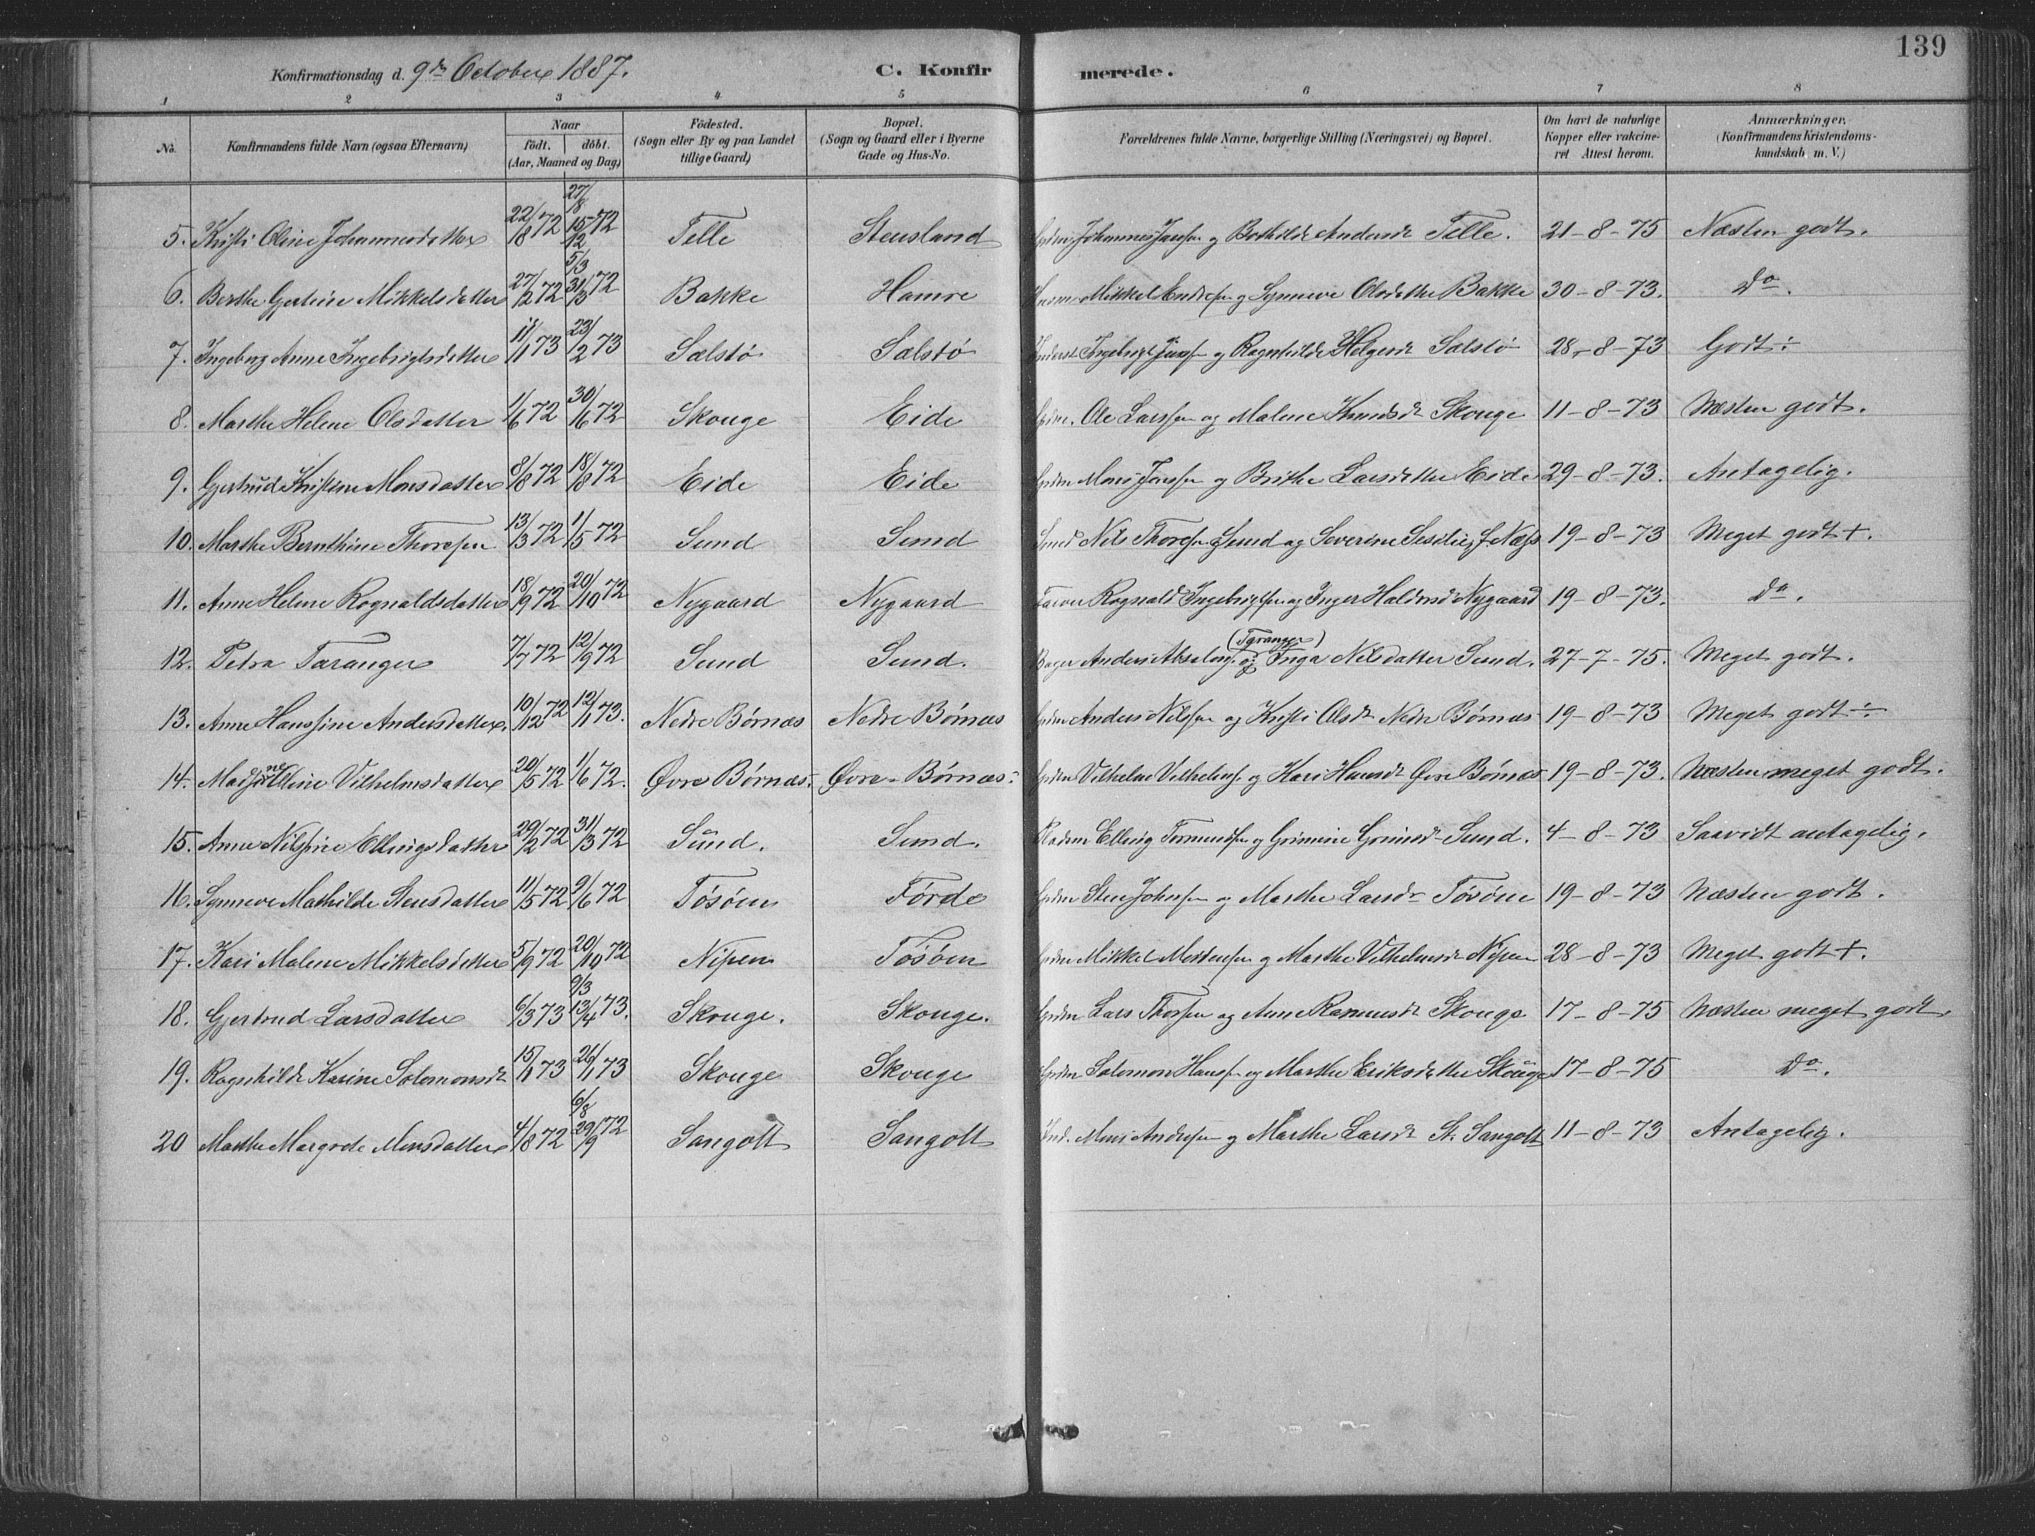 139
Konfirmationsdag d. 9de October 1887. C. Konfirmerede.
1 2 3 4 5 6 7 8
No. Konfirmandens fulde Navn (ogsaa Efternavn) Naar født. døbt. (Aar, Maaned og Dag) Fødested. (Sogn eller By og paa Landet tillige Gaard) Bopæl. (Sogn og Gaard eller i Byerne Gade og Hus-No. Forældrenes fulde Navne, borgerlige Stilling (Næringsvei) og Bopæl. Om havt de naturlige Kopper eller vakcineret Attest herom. Anmærkninger. (Konfirmandens Kristendomskundskab m. V.)
5. Kristi Oline Johannesdatter 22/8 72 27/8 15/12 72 Telle Stensland Johannes Jansen og Bothilde Andersd Telle. 21-8-75 Næsten godt.
6. Berthe Gjertine Mikkelsdatter 27/2 72 5/3 31/3 72 Bakke Hamre Mikkel Endresen og Synneve Olsdatter Bakke 30-8-73. Do.
7. Ingeborg Anne Ingebrigtsdatter 11/1 73 23/2 73 Sælstø Sælstø Ingebrigt Jansen og Ragnhilde Helgesd Sælstø 28-8-73 Godt ÷
8. Marthe Helene Olsdatter 1/6 72 30/6 72 Skouge Eide Ole Larssen og Malene Knudsd Skouge 11-8-73 Næsten godt.
9. Gjertrud Kristine Monsdatter 8/8 72 18/8 72 Eide Eide Mons Jansen og Brithe Larsdatter Eide 29-8-73. Antagelig.
10. Marthe Bernthine Thoresen 13/3 72 1/5 72 Sund Sund Nils Thoresen Sund og Severine f. Næss 19-8-73 Meget godt +.
11. Anne Helene Rognaldsdatter 18/9 72 20/10 72 Nygaard Nygaard Rognald Ingebrigtsen og Inger Haldorsd Nygaard 19-8-73. Do.
12. Petra Taranger 7/7 72 12/9 72 Sund Sund. Bager Anders Absalong (Taranger) og Inga Nilsdatter Sund. 27-7-75. Meget godt.
13. Anne Hanssine Andersdatter. 10/12 72 12/1 73. Nedre Børnæs Nedre Børnæs Anders Nilssen og Kristi Olsd Nedre Børnæs 19-8-73 Meget godt ÷.
14. Elline Vilhelmsdatter 20/5 72 1/6 72. Øvre Børnæs. Øvre Børnæs. Vilhelm Vilhelmsen og Kari Hansd Øvre Børnæs 19-8-73. Næsten meget godt.
15. Anne Nilssine Ellingsdatter 29/2 72 31/3 72 Sund. Sund. Elling Tormundsen og Grimsd Sund. 4-8-73 Saavidt antagelig.
16. Synneve Mathilde Stensdatter 11/5 72 9/6 72 Tøsøen Førde Sten Johnsen og Marthe Larsdr Tøsøen 19-8-73 Næsten godt.
17. Kari Malene Mikkelsdatter 5/9 72 20/10 72 Nipen Tøsøen Mikkel Mortensen og Marthe Vilhelmsdr Nipen 28-8-73 Meget godt +.
18. Gjertrud Larsdatter 6/3 73 9/3 13/4 73. Skouge. Skouge. Lars Thorsen og Anne Rasmusd Skouge 17-8-75 Næsten meget godt.
19. Ragnhilde Karine Solomonsdr 15/1 73 26/1 73 Skouge Skouge Salomon Hansen og Marthe Eriksdatter Skouge 17-8-75 Do.
20 Marthe Margrete Monsdatter 4/8 72 6/8 29/9 72 Sangolt Sangolt Mons Andersen og Marthe Larsdr St. Sangolt 11-8-73 Antagelig.